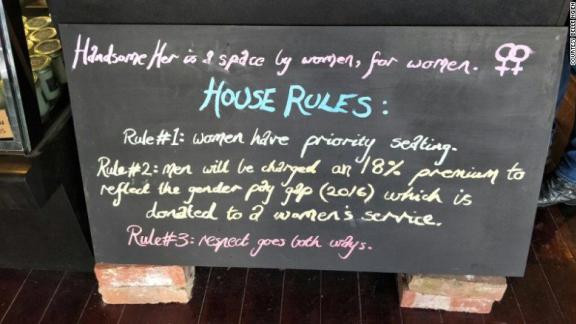 Handsome Her is a space by women, for women.
HOUSE RULES:
Rule #1: women have priority seating.
Rule #2: men will be charged an 18% premium to
reflect the gender pay gap (2016) which is
donated to a women's service.
Rule #3: respect goes both ways.
COURTESY BELLE NGIEN